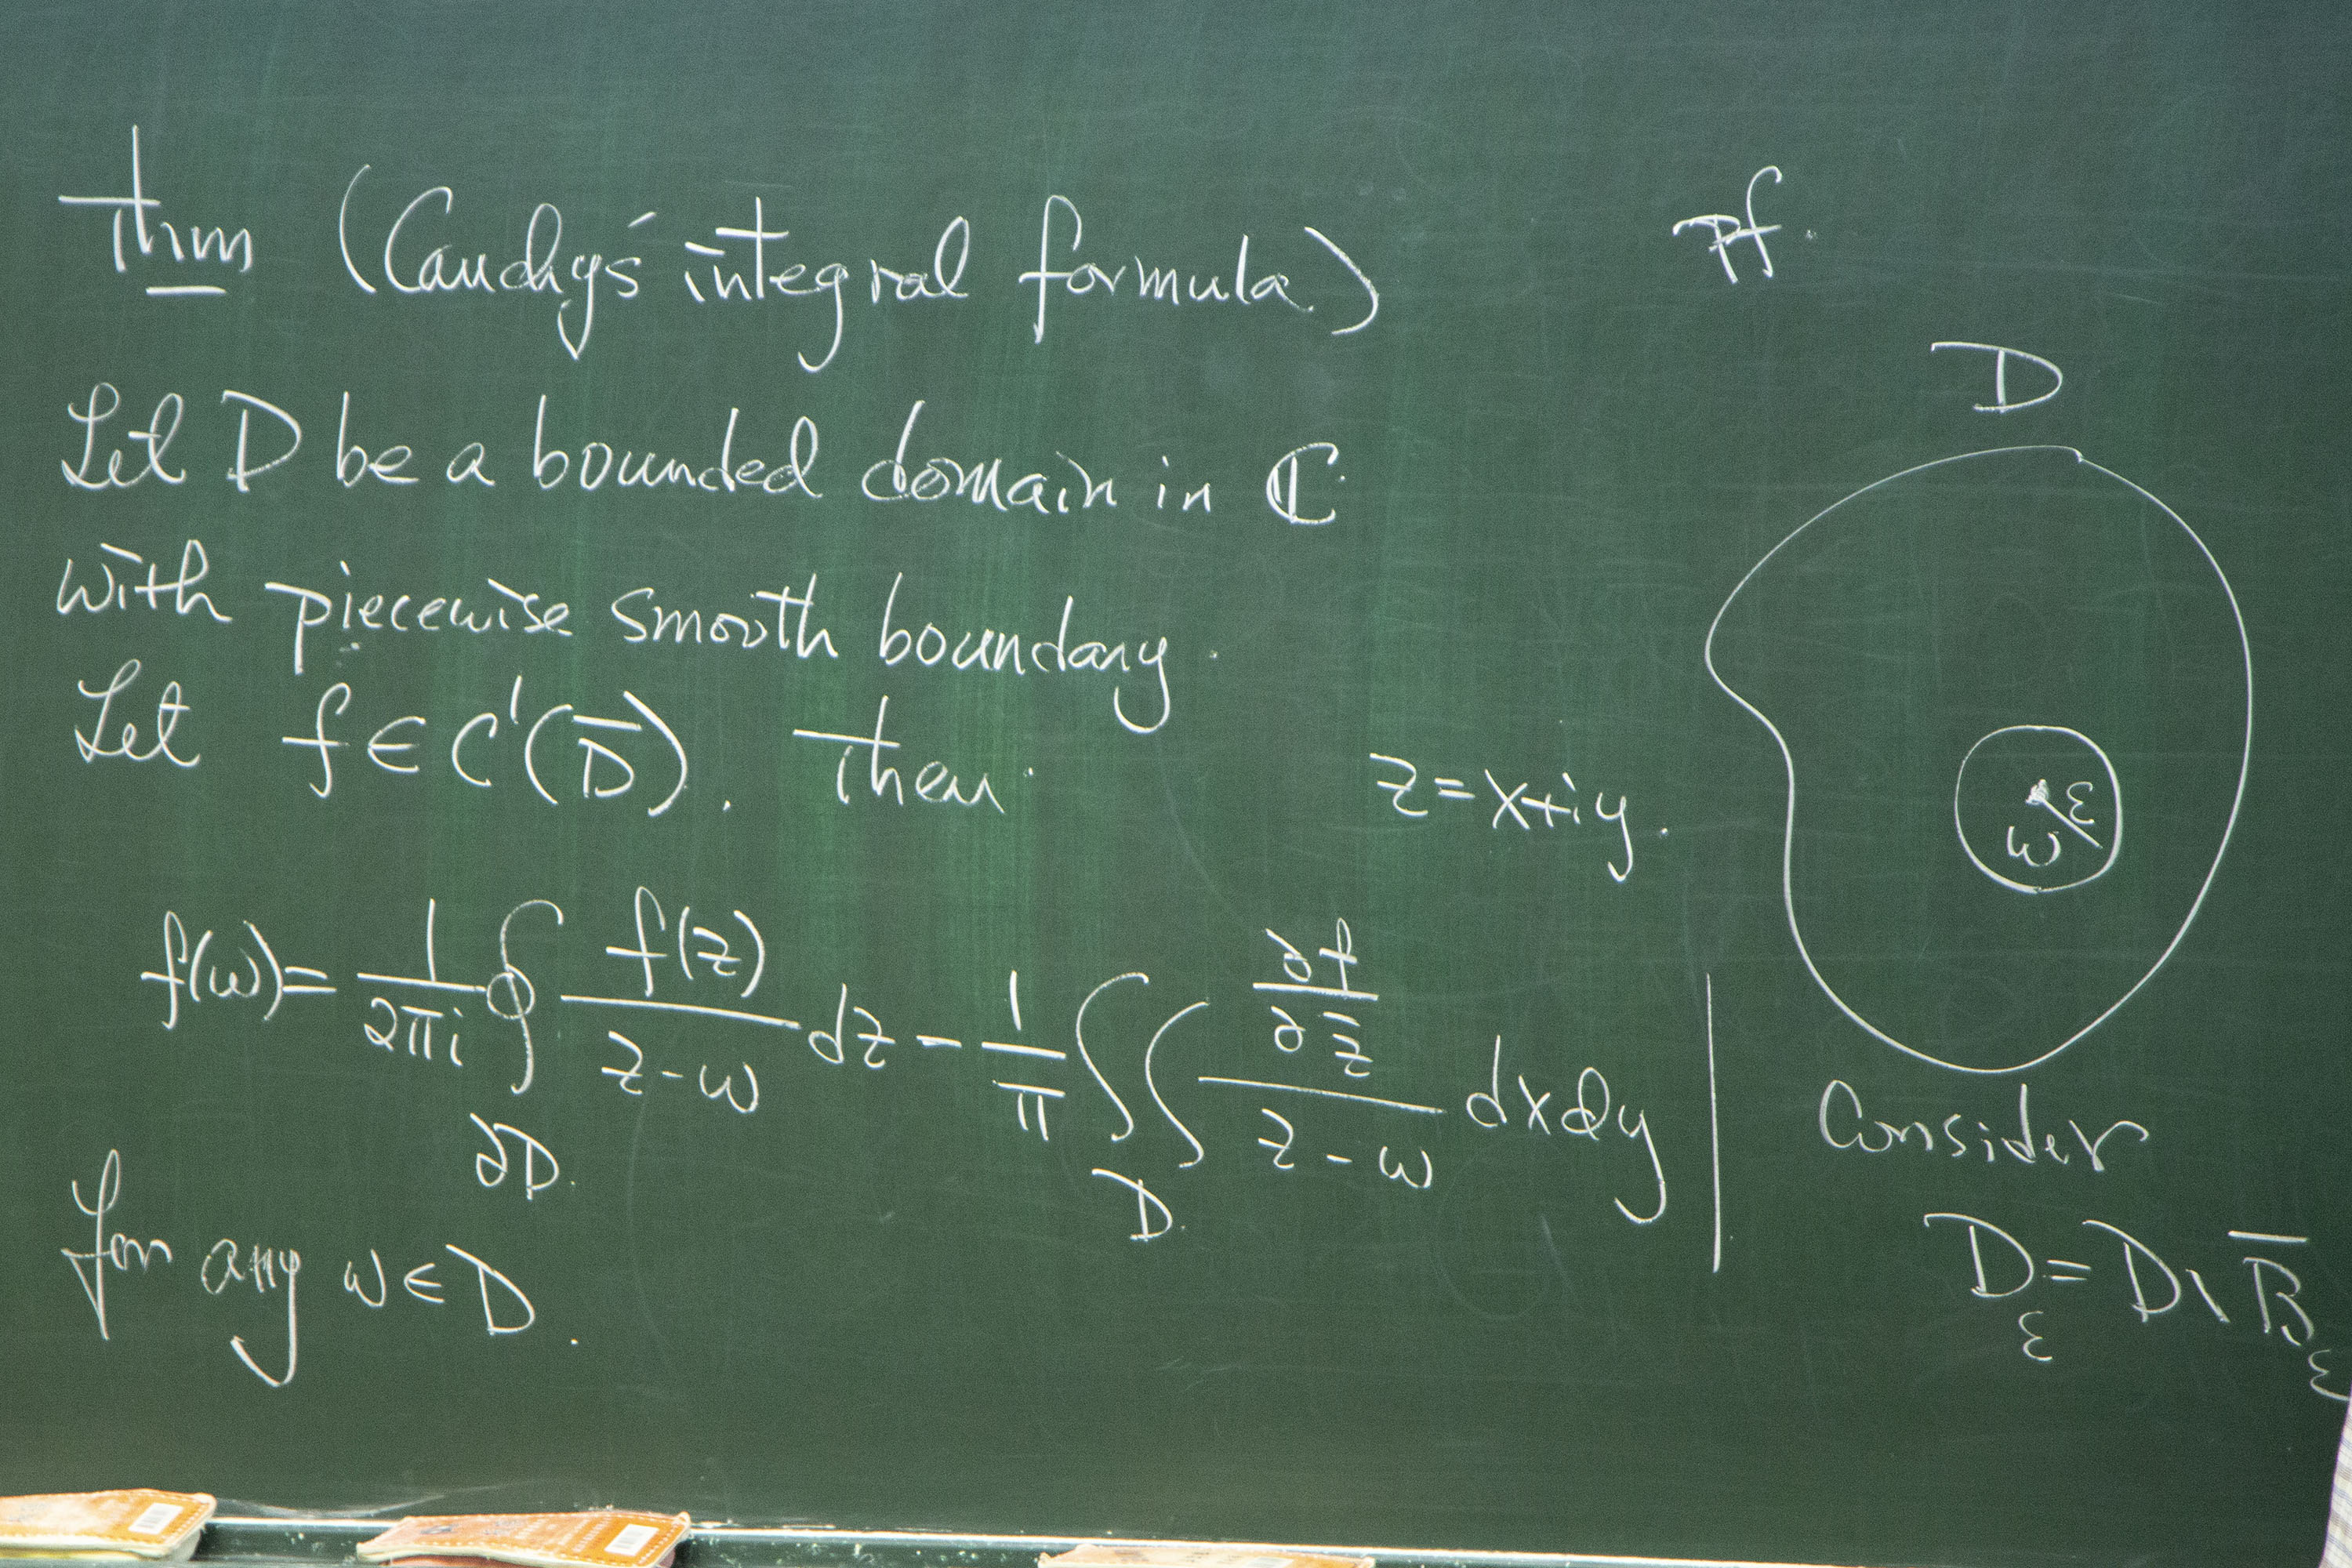 Thm (Cauchy's integral formula)
Let D be a bounded domain in ℂ
with piecewise smooth boundary.
Let f ∈ C¹(D̅). Then
z = x+iy.
f(w) = \frac{1}{2πi} ∮_{∂D} \frac{f(z)}{z-w} dz - \frac{1}{π} ∬_{D} \frac{\frac{∂f}{∂\bar{z}}}{z-w} dxdy
for any w ∈ D.
pf.
D
ε
w
Consider
D_ε = D \ \overline{B}_ε